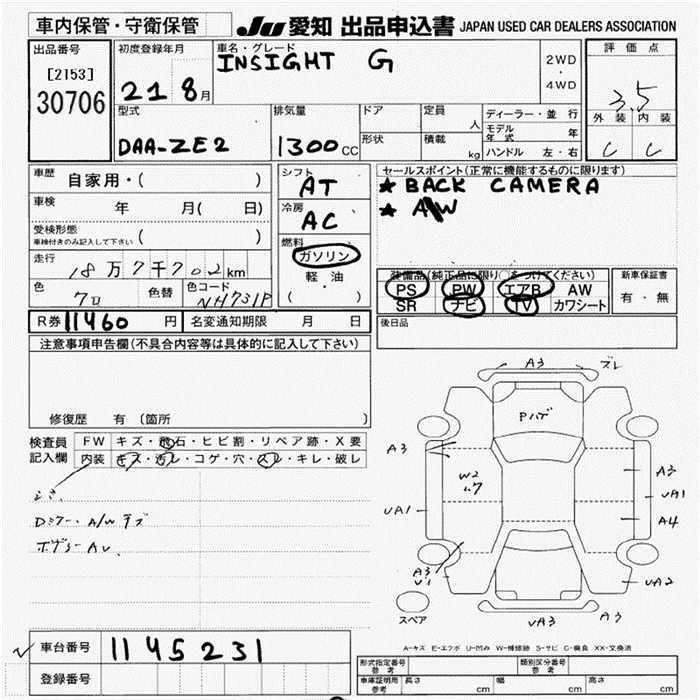 車内保管・守衛保管
JU 愛知 出品申込書 JAPAN USED CAR DEALERS ASSOCIATION
出品番号
[2153]
30706
初度登録年月
21 8月
車名・グレード
INSIGHT G
2WD
・
4WD
評価点
3.5
外装 内装
C C
型式
DAA-ZE2
排気量
1300cc
ドア
形状
定員 人
積載 kg
ディーラー・並行
モデル年式 年
ハンドル 左・右
車歴 自家用・( )
車検 年 月( 日)
受検形態
車検付きのみ記入して下さい ( )
走行 18万7千702km
色 クロ 色替 色コード NH731P
シフト
AT
冷房
AC
燃料
ガソリン
軽・油
( ・ )
セールスポイント(正常に機能するものに限ります)
★ BACK CAMERA
★ A/W
装備品(純正品に限り○をつけてください)
PS PW エアB AW
SR ナビ TV カワシート
新車保証書
有・無
R券 11460円 名変通知期限 月 日
後日品
注意事項申告欄(不具合内容等は具体的に記入して下さい)
修復歴 有 (箇所 )
検査員
記入欄
FW キズ・飛石・ヒビ割・リペア跡・X要
内装 キズ・汚レ・コゲ・穴・スレ・キレ・破レ
Dミラー・A/Wキズ
A3 ズレ
Pハゲ
A3
W2
UA1
A3
UA1
A4
A3
V1
UA2
UA3 A3
スペア
A-キズ E-エクボ U-凹み W-補修跡 S-サビ C-腐食 XX-交換済
車台番号 1145231
登録番号
形式指定番号
参考
類別区分番号
参考
車庫証明用
参考
長さ cm 幅 cm 高さ cm